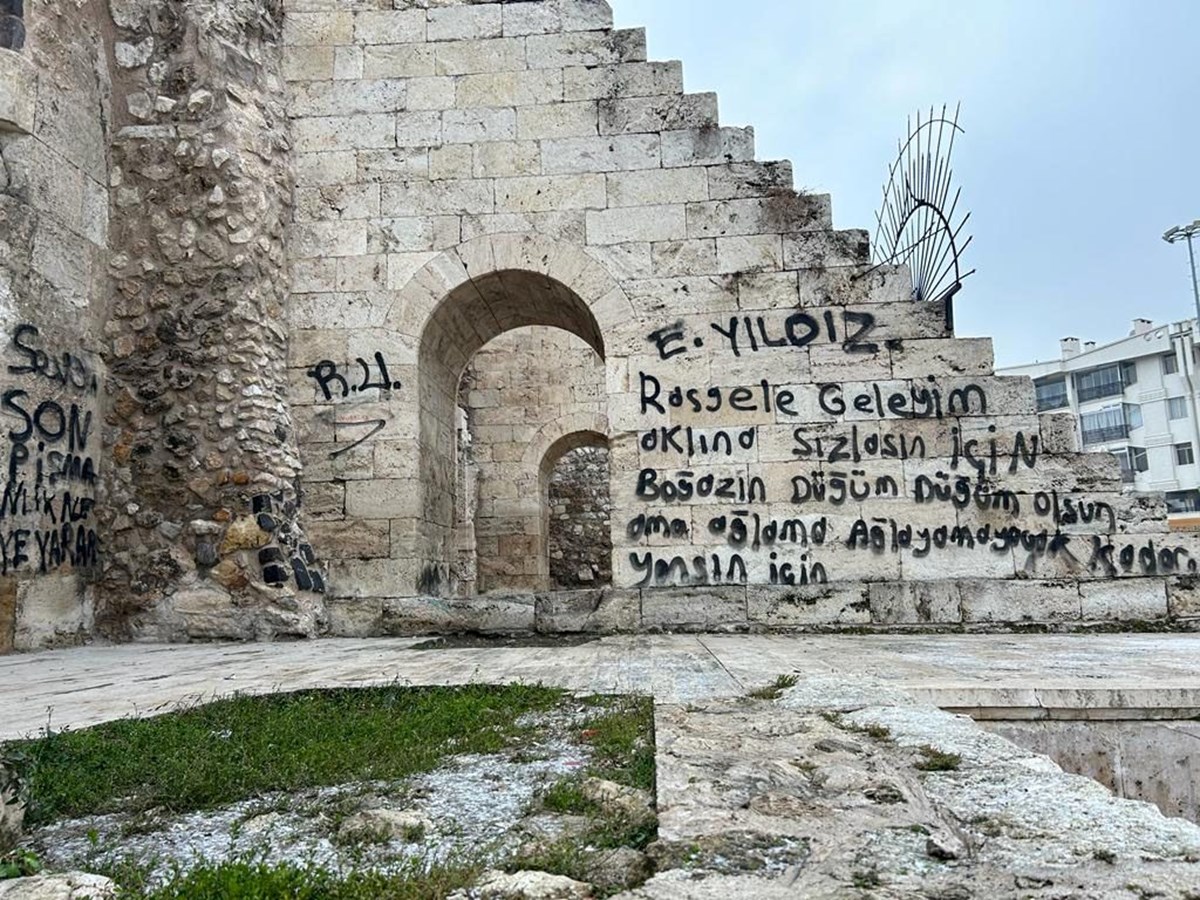 SON
PİŞMA
NLIK NE
YE YARAR
R.U.
E. YILDIZ.
Rasgele Geleyim
aklına sızlasın için
Boğazın Düğüm Düğüm olsun
ama ağlama Ağlayamayacak kadar
yansın için